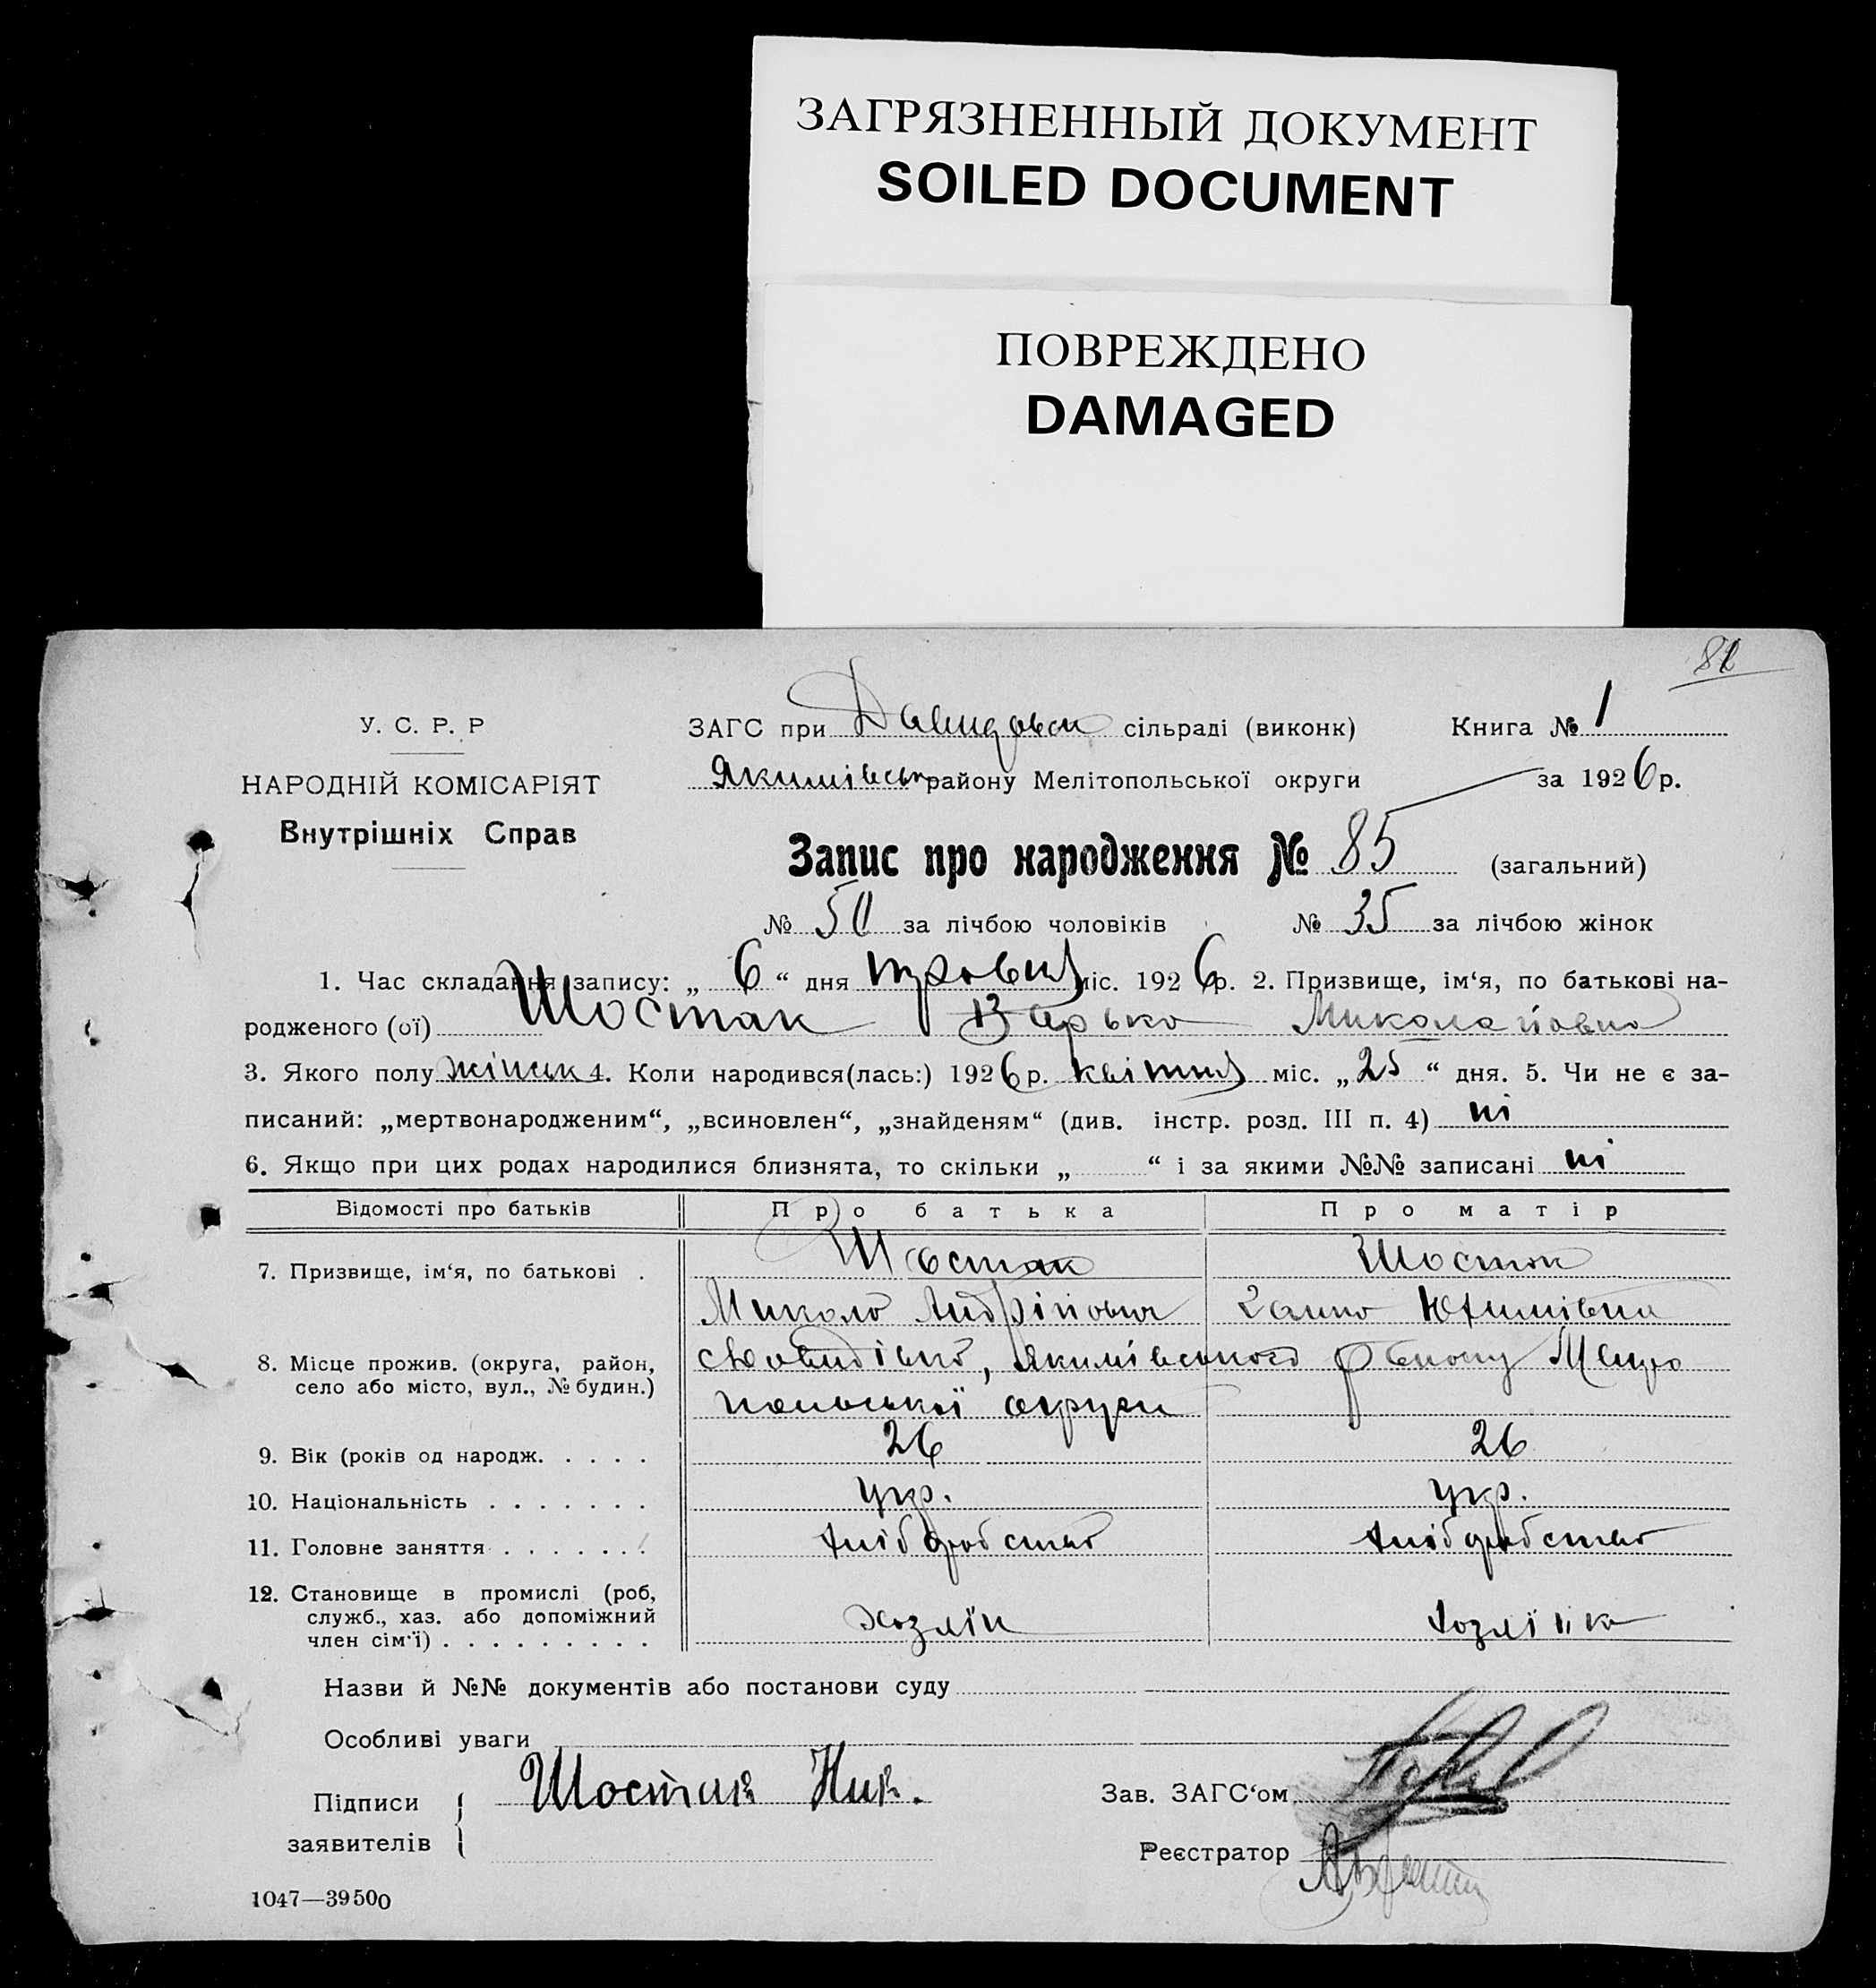 ЗАГРЯЗНЕННЫЙ ДОКУМЕНТ
SOILED DOCUMENT
ПОВРЕЖДЕНО
DAMAGED
У. С. Р. Р
НАРОДНІЙ КОМІСАРІЯТ
Внутрішніх Справ
ЗАГС при Давидовск сільраді (виконк) Книга № 1
Якимівськ району Мелітопольської округи за 1926 р.
Запис про народження № 85 (загальний)
№ 50 за лічбою чоловіків № 35 за лічбою жінок
1. Час складання запису: „ 6 “ дня травня міс. 1926 р. 2. Призвище, ім‘я, по батькові на-
родженого (ої) Шостак Варька Миколаївна
3. Якого полу жіноч 4. Коли народився(лась:) 1926 р. квітня міс. „ 25 “ дня. 5. Чи не є за-
писаний: „мертвонародженим“, „всиновлен“, „знайденям“ (див. інстр. розд. III п. 4) ні
6. Якщо при цих родах народилися близнята, то скільки „ “ і за якими №№ записані ні
Відомості про батьків Про батька Про матір
7. Призвище, ім‘я, по батькові . Шостак Шостак
Микола Андрійович Ганна Юхимівна
8. Місце прожив. (округа, район, село або місто, вул., № будин.) Якимівського району
польської округи
9. Вік (років од народж. . . . . 26 26
10. Національність . . . . . . . Укр. Укр.
11. Головне заняття . . . . . . . хліборобство хліборобство
12. Становище в промислі (роб,
служб., хаз. або допоміжний
член сім‘ї) . . . . . . . . . Хозяїн хозяїнка
Назви й №№ документів або постанови суду
Особливі уваги
Підписи
заявителів { Шостак Ник.
Зав. ЗАГС‘ом
Реєстратор
1047—39500